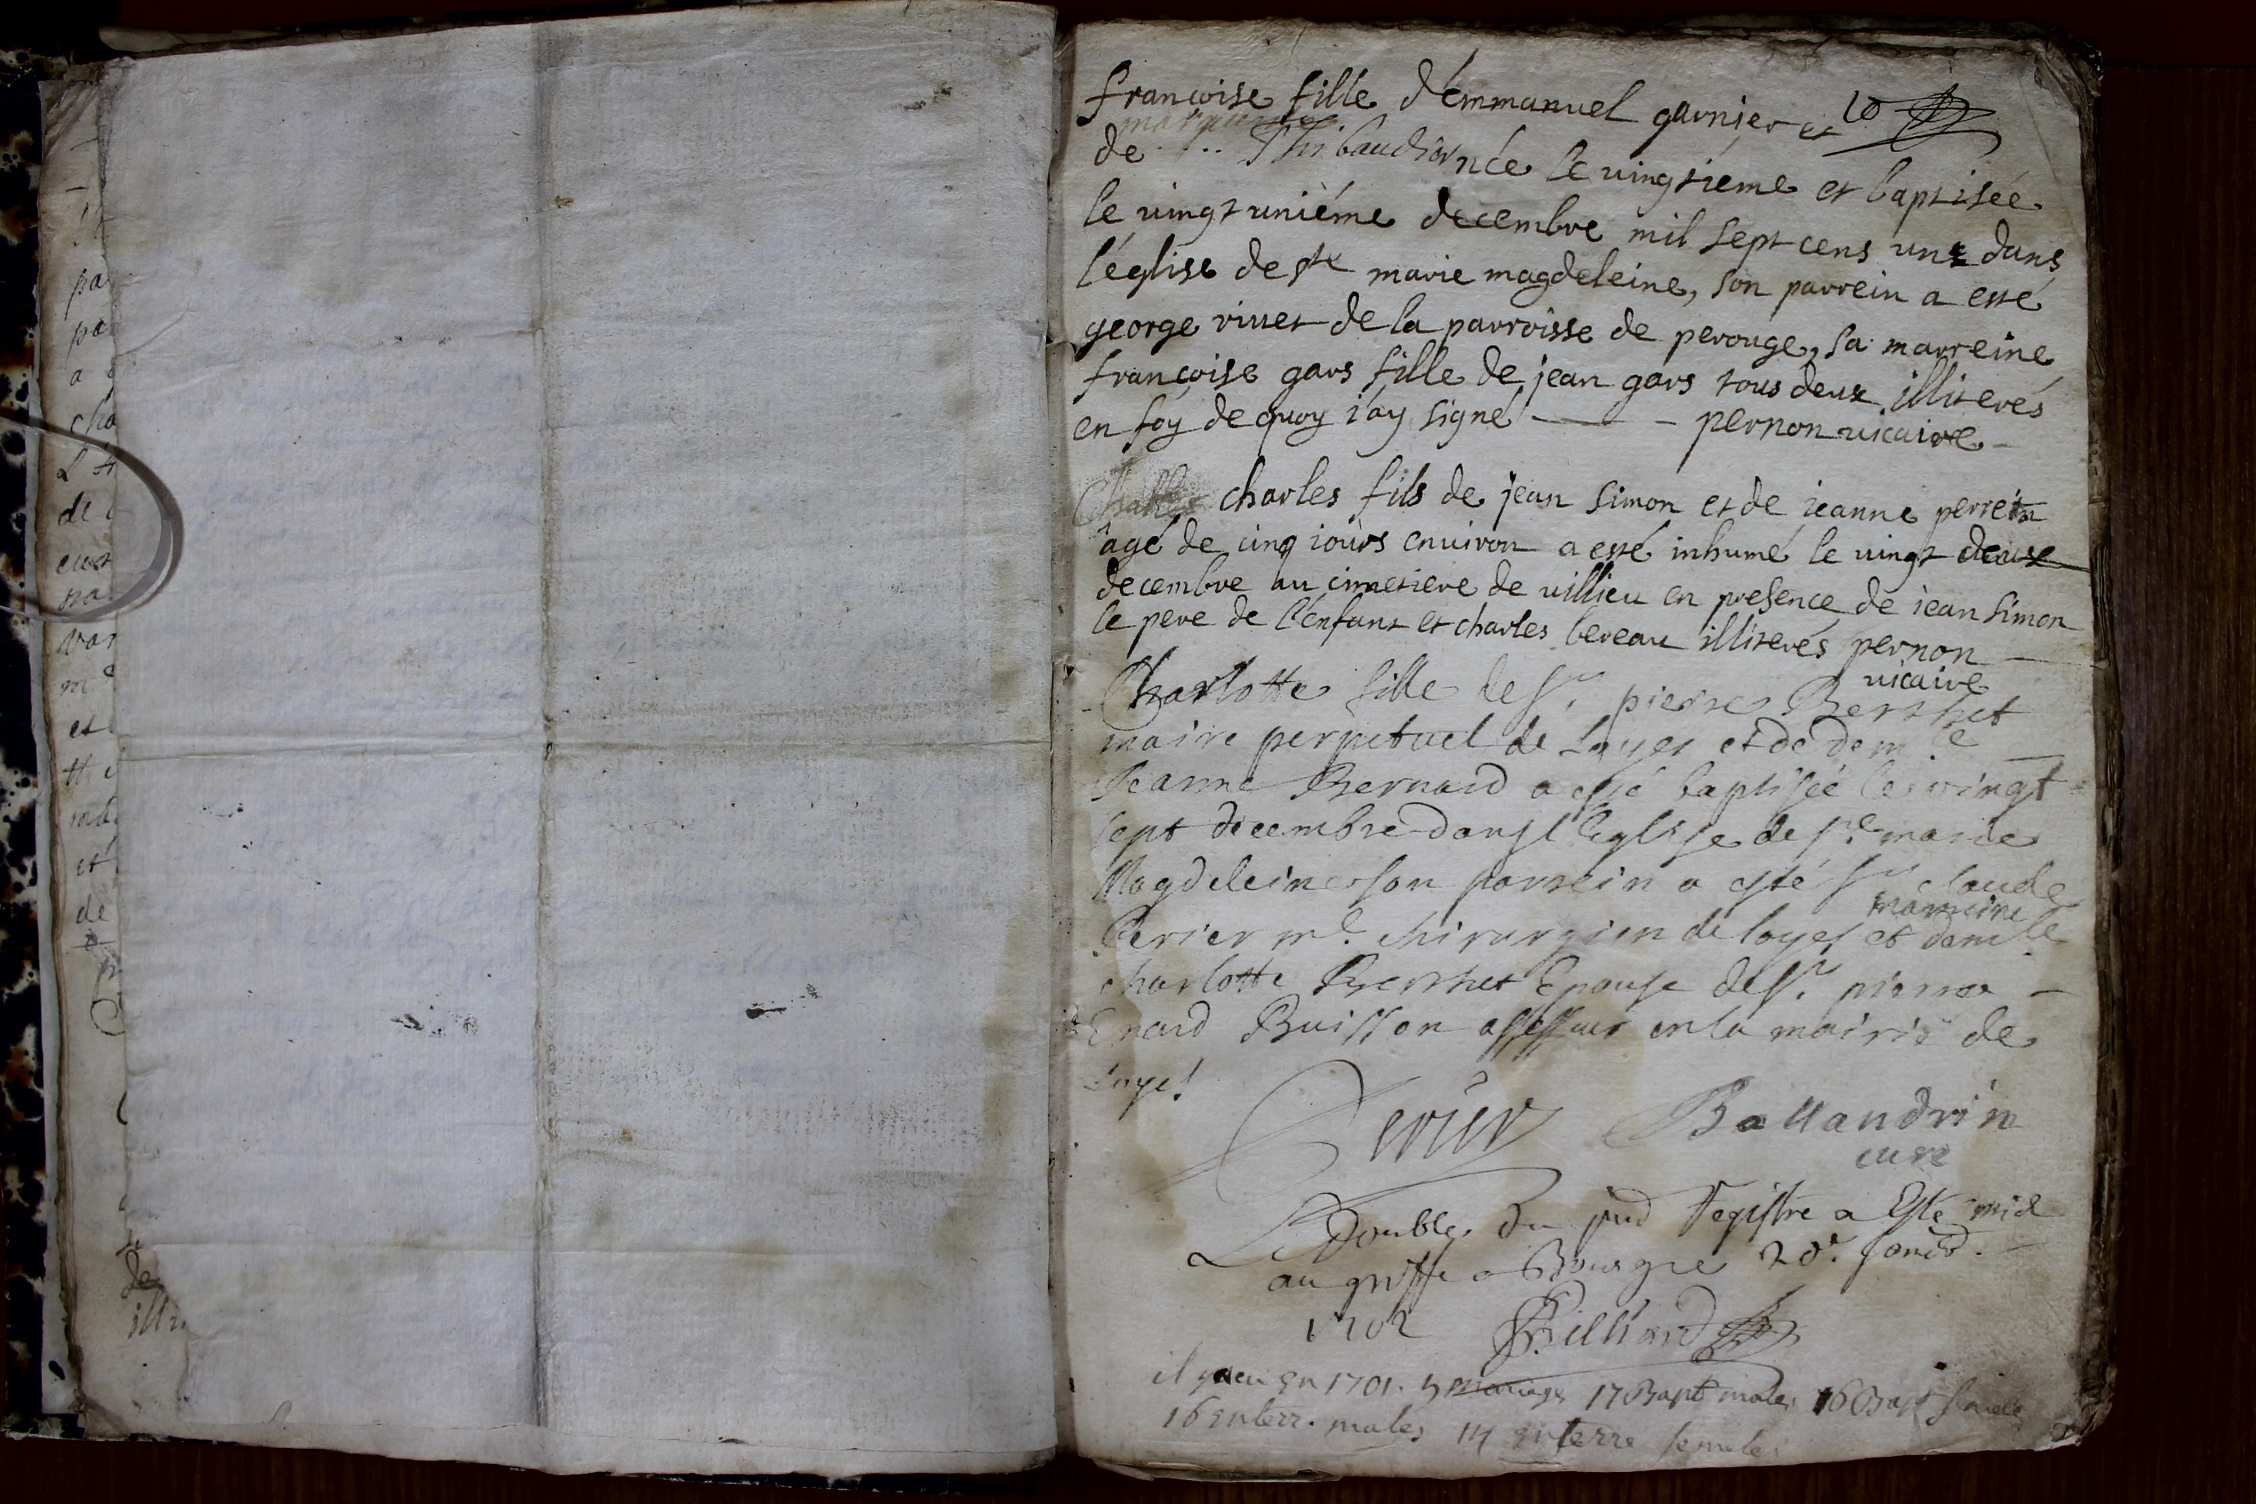 françoise fille d'emmanuel garnier et 10
de Thibaudier née le vingtieme et baptisée
le vingt uniéme decembre mil sept cens un dans
l'église de ste marie magdeleine, son parrein a esté
george rivet de la parroisse de perouge, sa marreine
françoise gars fille de jean gars tous deux illiterés
en foy de quoy i'ay signé pernon vicaire
charles fils de jean simon et de ieanne perrein
âgé de cinq iours environ a esté inhumé le vingt deuse
decembre au cimetiere de villieu en presence de iean simon
le pere de l'enfant et charles bereau illiterés pernon
vicaire
Charlotte fille de sr. pierre Berthet
maire perpetuel de Loyes et de demlle
Jeanne Bernard a esté baptisée le vingt
sept decembre dans l'eglise de ste marie
Magdeleine son parrein a esté sr claude
marreine
Perier me. chirurgien de loyes et demlle
charlotte Berthet Epouse de sr. pierre
Enard Buisson assesseur en la mairie de
Loyes
Perier Ballandrin
curé
Le Double du pnt Registre a Esté mis
au greffe a Bourg le 20e. janvr.
1702 Billiard
il y a eu en 1701. 5 mariages 17 Bapt males 16 Bapt femelle
16 enterr. males 14 enterre femeles
pa
pa
a
cha
de
et
et
de
de